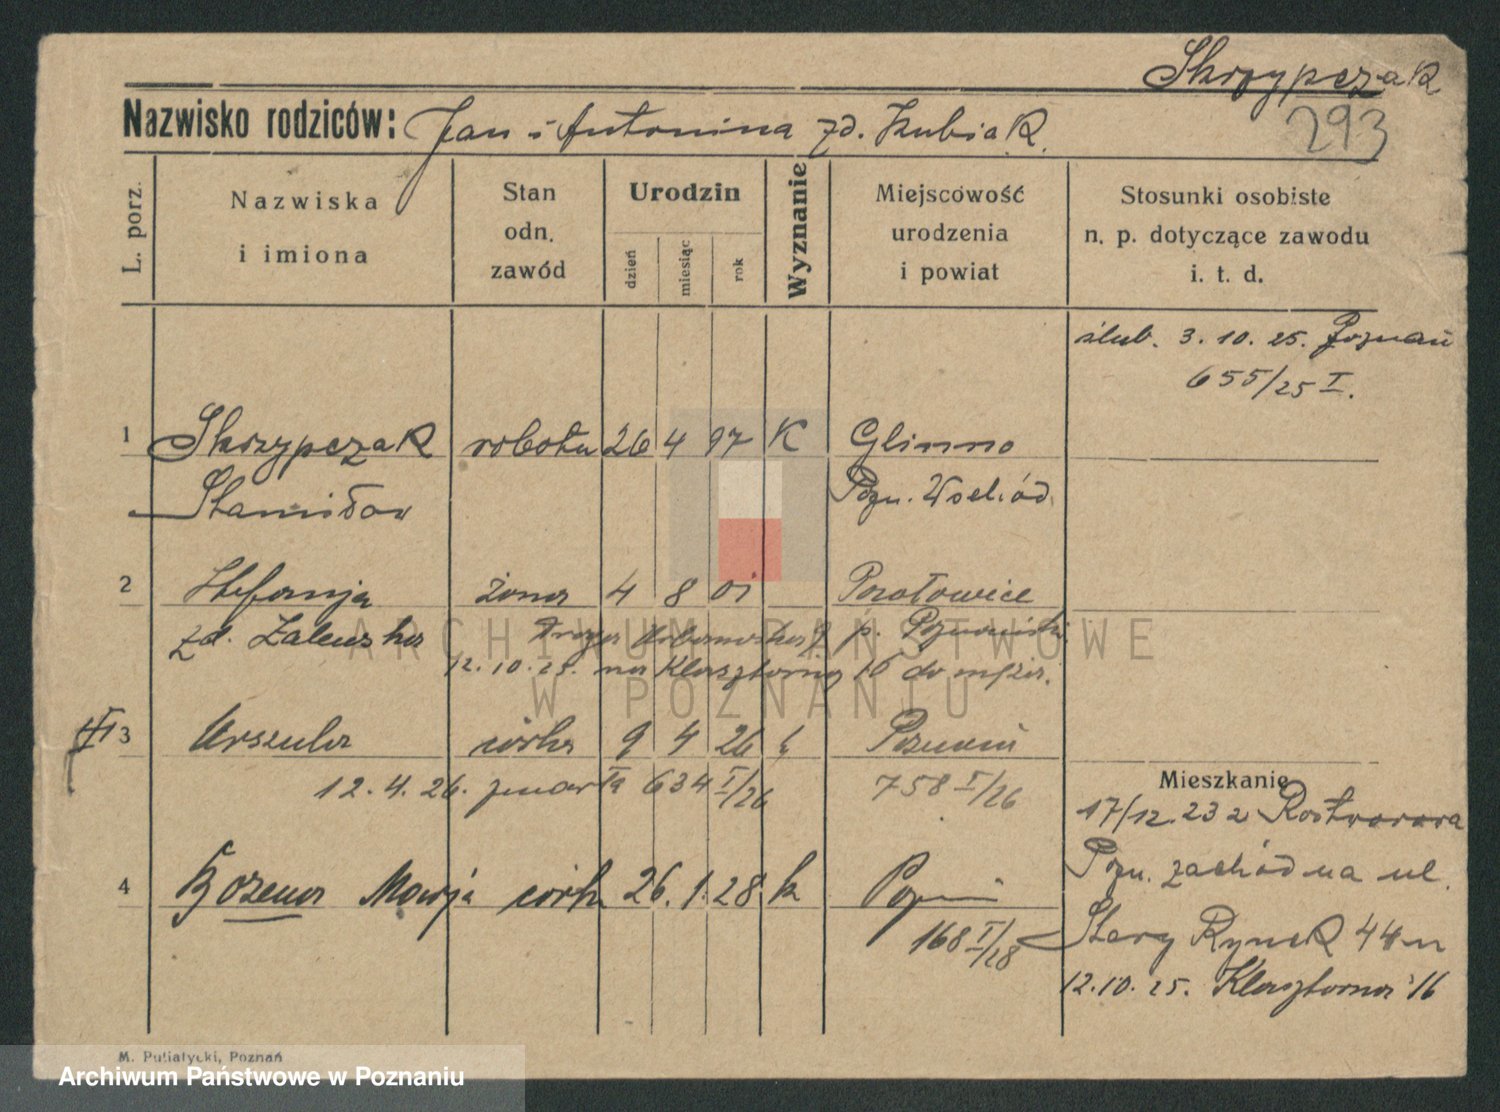 Skrzypczak
293
Nazwisko rodziców: Jan i Antonina zd. Kubiak.
L. porz.
Nazwiska i imiona
Stan odn. zawód
Urodzin
dzień
miesiąc
rok
Wyznanie
Miejscowość urodzenia i powiat
Stosunki osobiste n. p. dotyczące zawodu i. t. d.
ślub. 3. 10. 25. Poznań
655/25 I.
1 Skrzypczak robotn 26 4 97 K Glinno
Stanisław Pozn. Wschód
2 Stefanja żona 4 8 01
zd. Zalewska p. Poznański
12.10.25. na Klasztorną 16 do męża.
3 Urszula córka 9 4 26 k Poznań
12.4.26. zmarła 634 I/26 758 I/26
Mieszkanie
17/12.23 z
Pozn. zachód na ul.
4 Bozena Marja córk 26. 1. 28 k Pozn
168 I/28 Stary Rynek 44
12.10.25. Klasztorna 16
M. Putiatycki, Poznań
ARCHIWUM PAŃSTWOWE
W POZNANIU
Archiwum Państwowe w Poznaniu